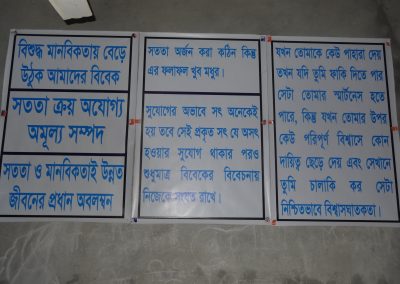 বিশুদ্ধ মানবিকতায় বেড়ে
উঠুক আমাদের বিবেক
সততা ক্রয় অযোগ্য
অমূল্য সম্পদ
সততা ও মানবিকতাই উন্নত
জীবনের প্রধান অবলম্বন
সততা অর্জন করা কঠিন কিন্তু
এর ফলাফল খুব মধুর।
সুযোগের অভাবে সৎ অনেকেই
হয় তবে সেই প্রকৃত সৎ যে অসৎ
হওয়ার সুযোগ থাকার পরও
শুধুমাত্র বিবেকের বিবেচনায়
নিজেকে সংযত রাখে।
যখন তোমাকে কেউ পাহারা দেয়
তখন যদি তুমি ফাকি দিতে পার
সেটা তোমার স্মার্টনেস হতে
পারে, কিন্তু যখন তোমার উপর
কেউ পরিপূর্ণ বিশ্বাসে কোন
দায়িত্ব ছেড়ে দেয় এবং সেখানে
তুমি চালাকি কর সেটা
নিশ্চিতভাবে বিশ্বাসঘাতকতা।